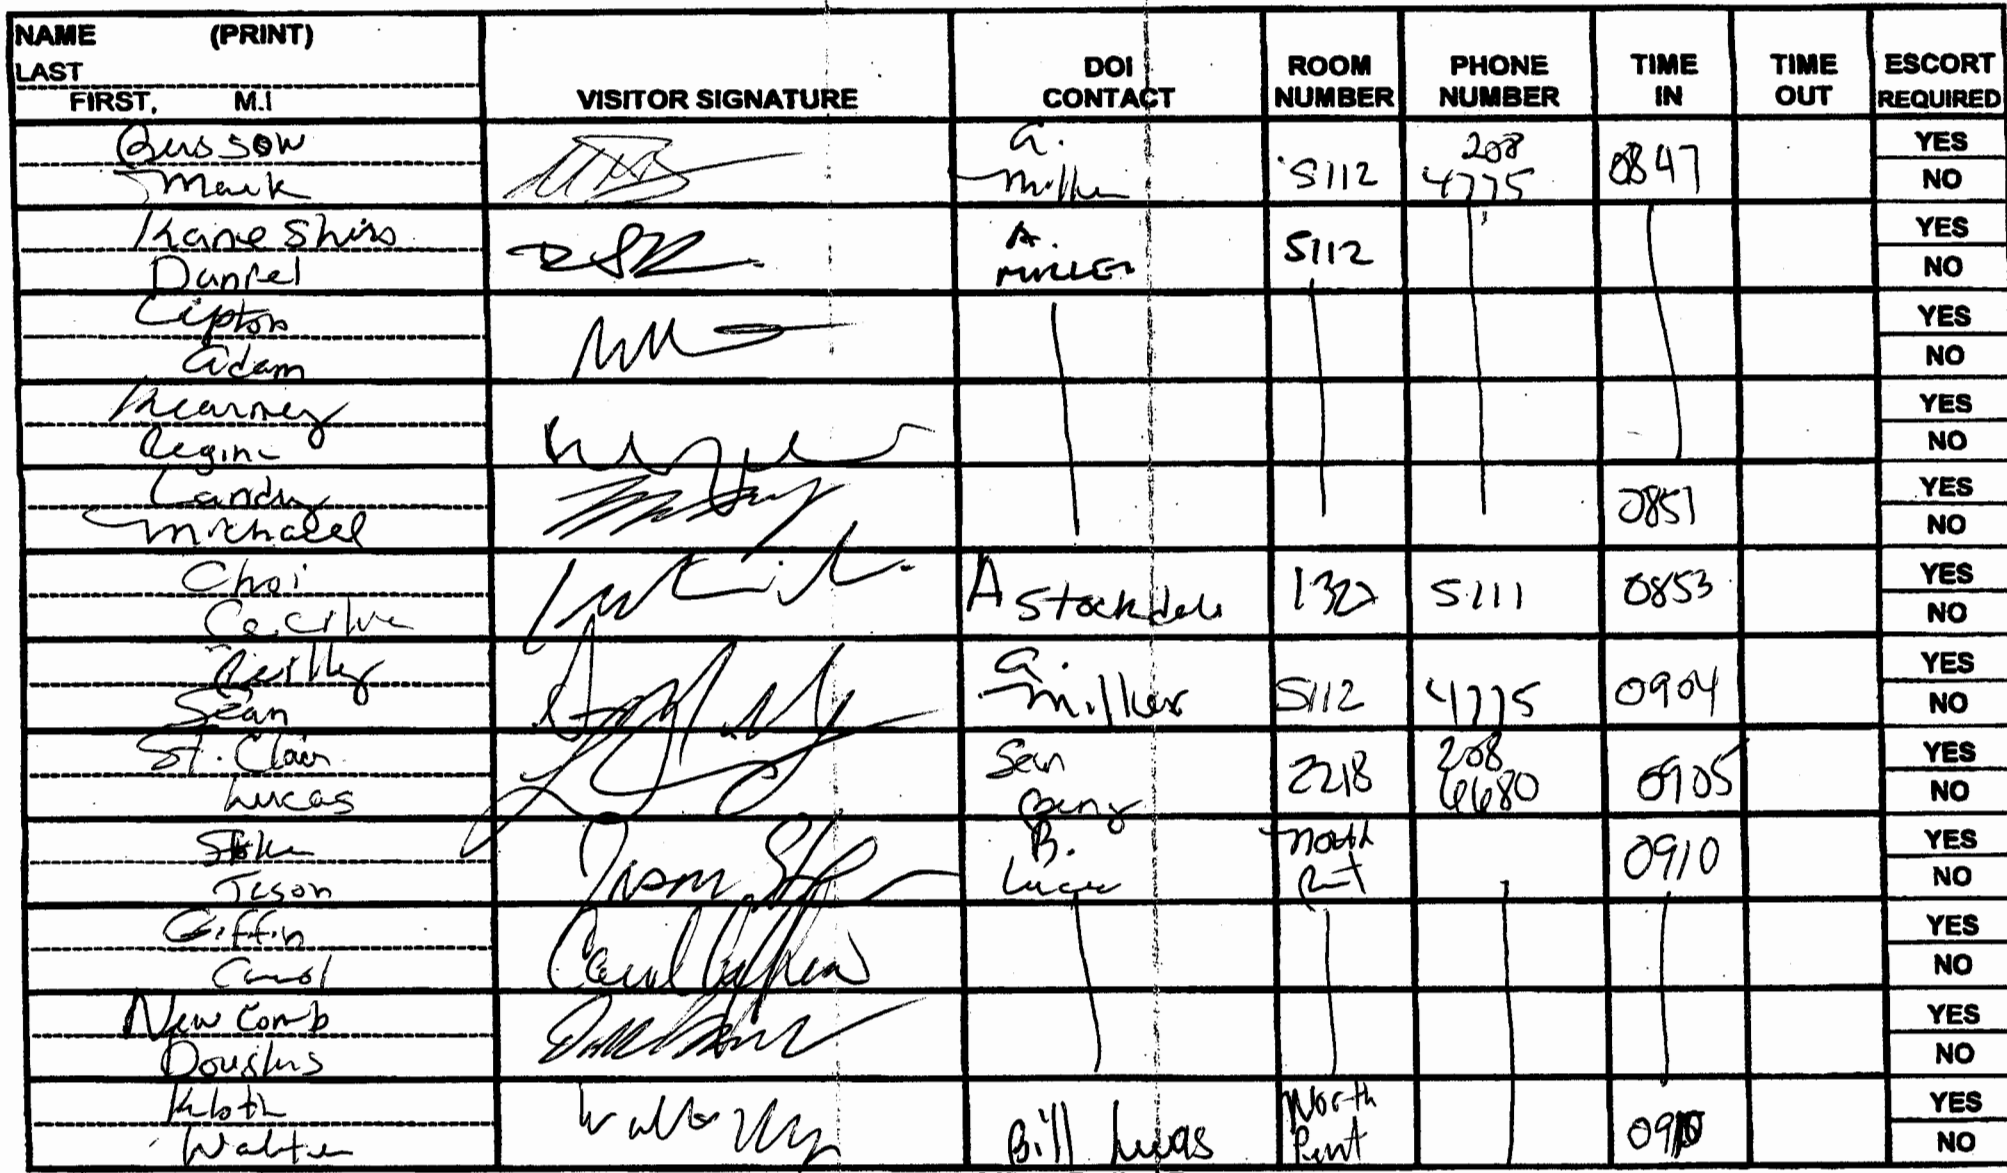 NAME (PRINT)
LAST
FIRST, M.I
VISITOR SIGNATURE
DOI CONTACT
ROOM NUMBER
PHONE NUMBER
TIME IN
TIME OUT
ESCORT REQUIRED
Bussow
Mark
A. Miller
5112
208 4775
0847
YES
NO
Kaneshiro
Daniel
A. MILLER
5112
YES
NO
Lipton
Adam
YES
NO
Kearney
YES
NO
Landry
Michael
0851
YES
NO
Choi
A Stockdale
5111
0853
YES
NO
Reilly
Sean
A. Miller
5112
4775
0904
YES
NO
St. Clair
Lucas
Sean
2218
208 6680
0905
YES
NO
Jason
Jason
B. Lucas
North
0910
YES
NO
Giffin
Carol
Carol
YES
NO
Newcomb
Douglas
YES
NO
Kloth
Walter
Bill Lucas
North Pent
0910
YES
NO